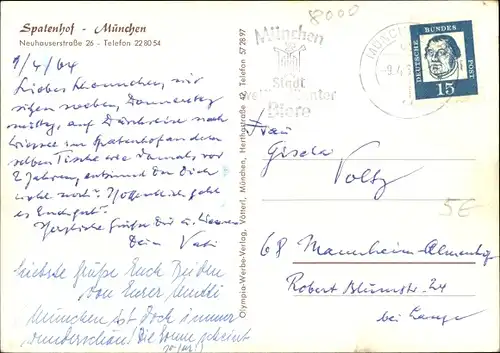 Spatenhof - München
Neuhauserstraße 26 - Telefon 22 80 54
9/4/64
Liebes Hannchen, wir
sitzen soeben, Donnerstag
mittag, auf Durchreise nach
im Spatenhof an dem
selben Tische wie damals vor
2 Jahren, entsinnst Du Dich
wohl noch? Hoffentlich geht
es Euch gut.
Herzliche Grüße Dir u.
Dein Vati
Herzliche Grüße Euch Beiden
von Eurer Mutti
München ist doch immer
wunderschön! Die Sonne scheint
Olympia-Werbe-Verlag, Vötterl, München, Herthastraße 42, Telefon 57 28 97
8000
München
Stadt
Biere
MÜNCHEN
-9.4
DEUTSCHE BUNDES POST
15
Frau
Gisela
Voltz
5€
68 Mannheim-Almenhof
Robert Blumstr. 24
bei Lange